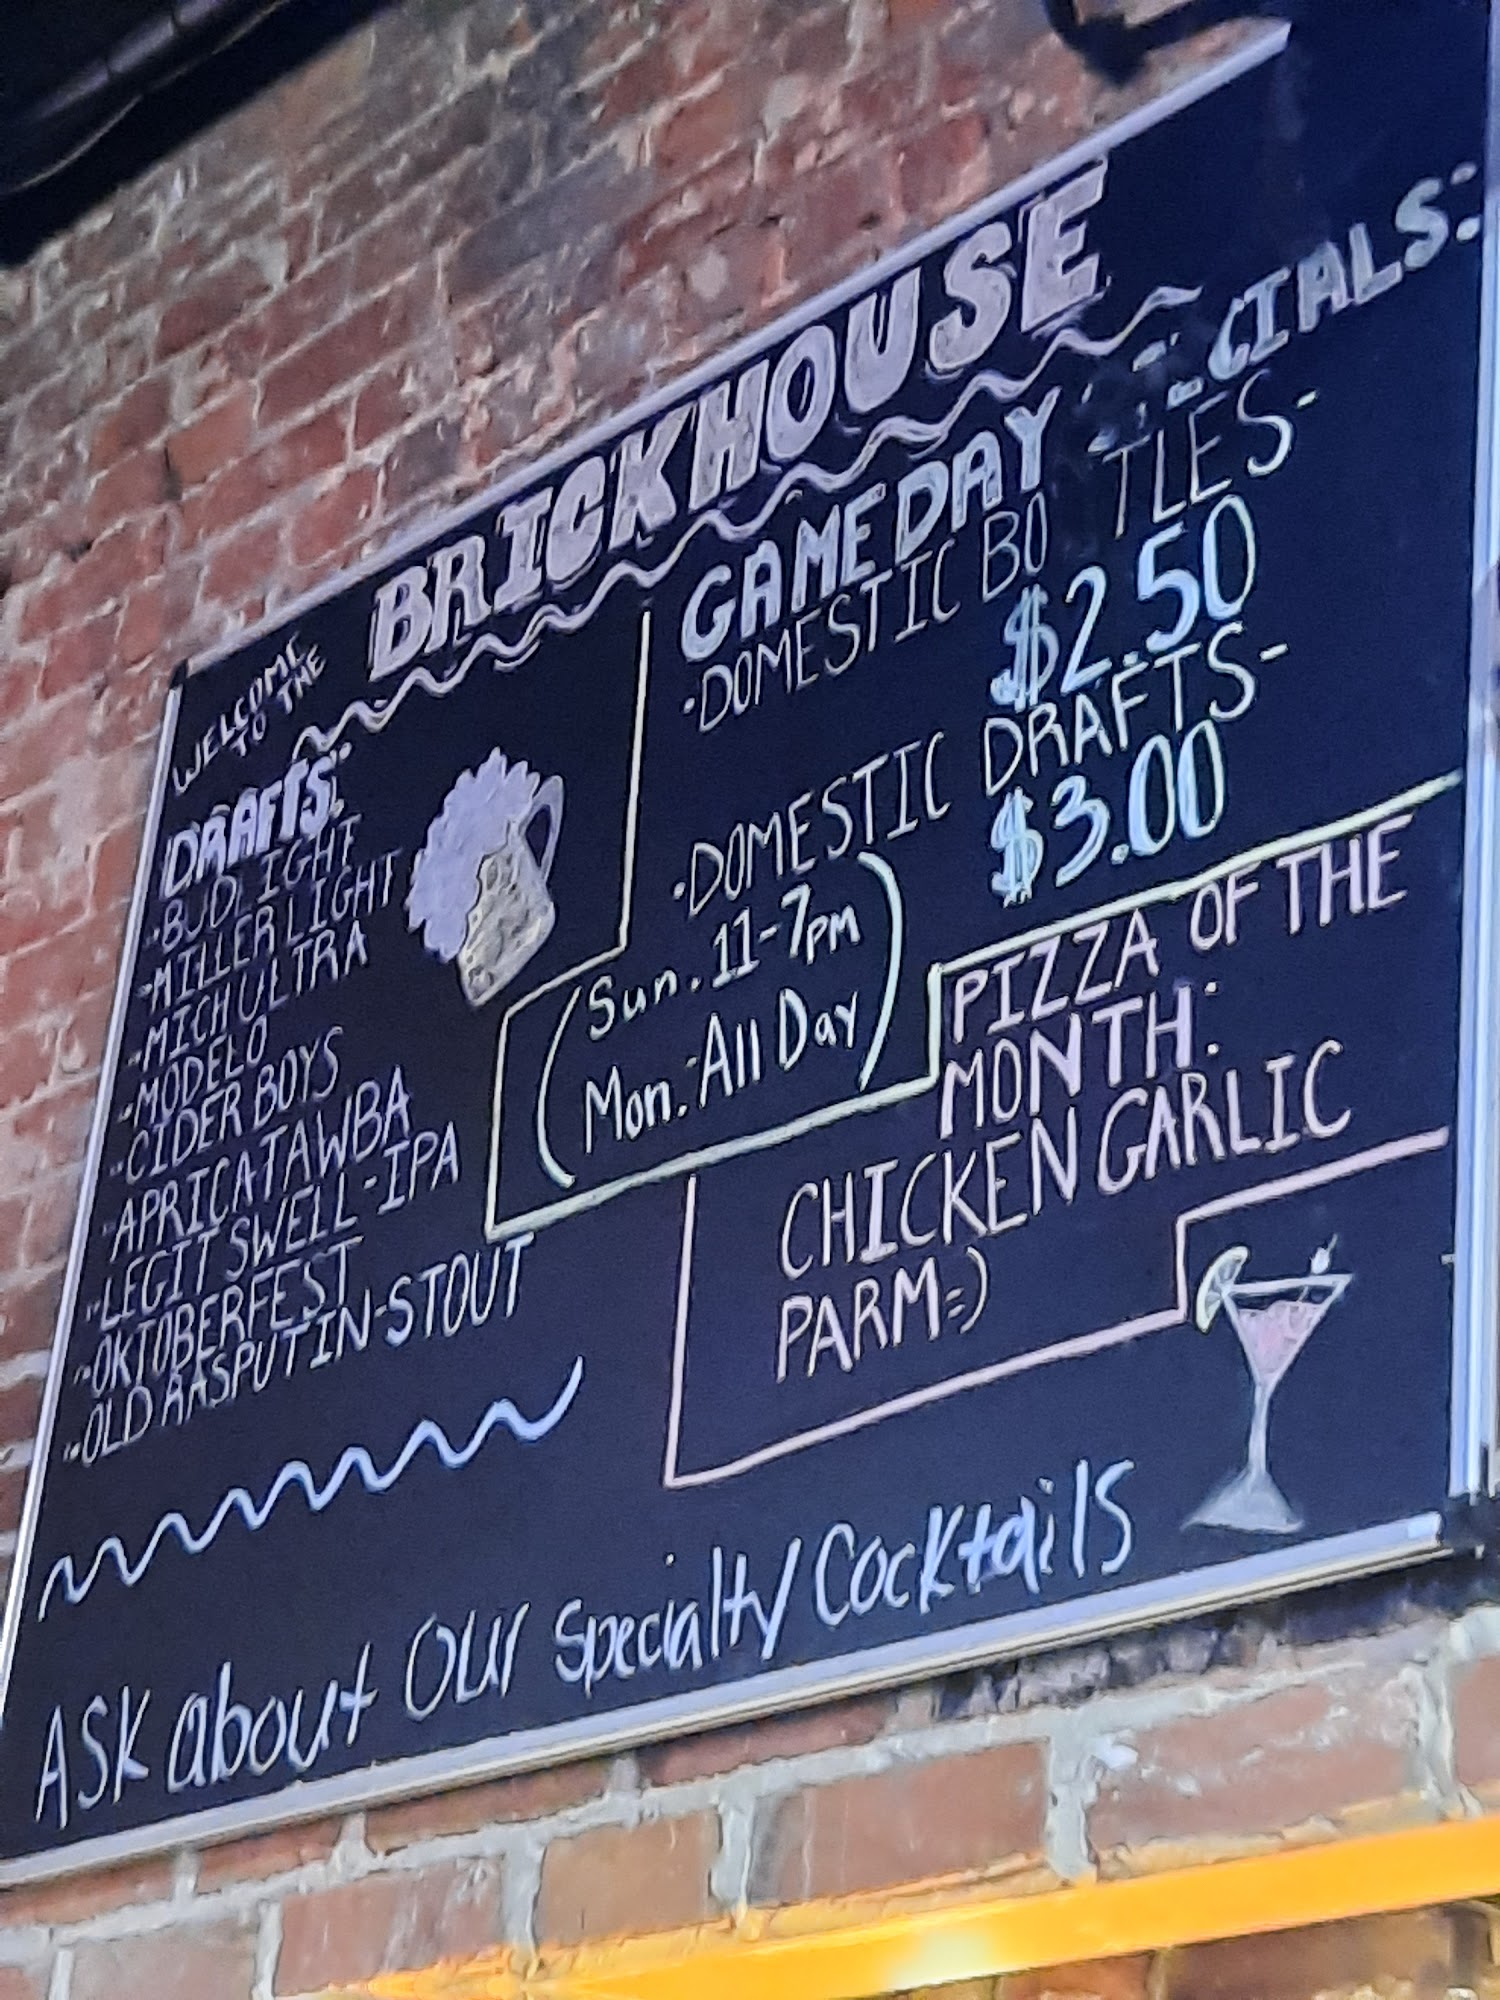 WELCOME
TO THE
BRICKHOUSE
DRAFTS:
-BUD IGHT
-MILLER LIGHT
-MICH ULTRA
-MODELO
-CIDER BOYS
-APRICATAWBA
-LEGIT SWELL-IPA
-OKTOBERFEST
-OLD RASPUTIN-STOUT
GAMEDAY CIALS:
·DOMESTIC BO TLES-
$2.50
·DOMESTIC DRAFTS-
$3.00
(Sun. 11-7pm
Mon. All Day)
PIZZA OF THE
MONTH:
CHICKEN GARLIC
PARM=)
ASK about OUr Specialty Cocktails